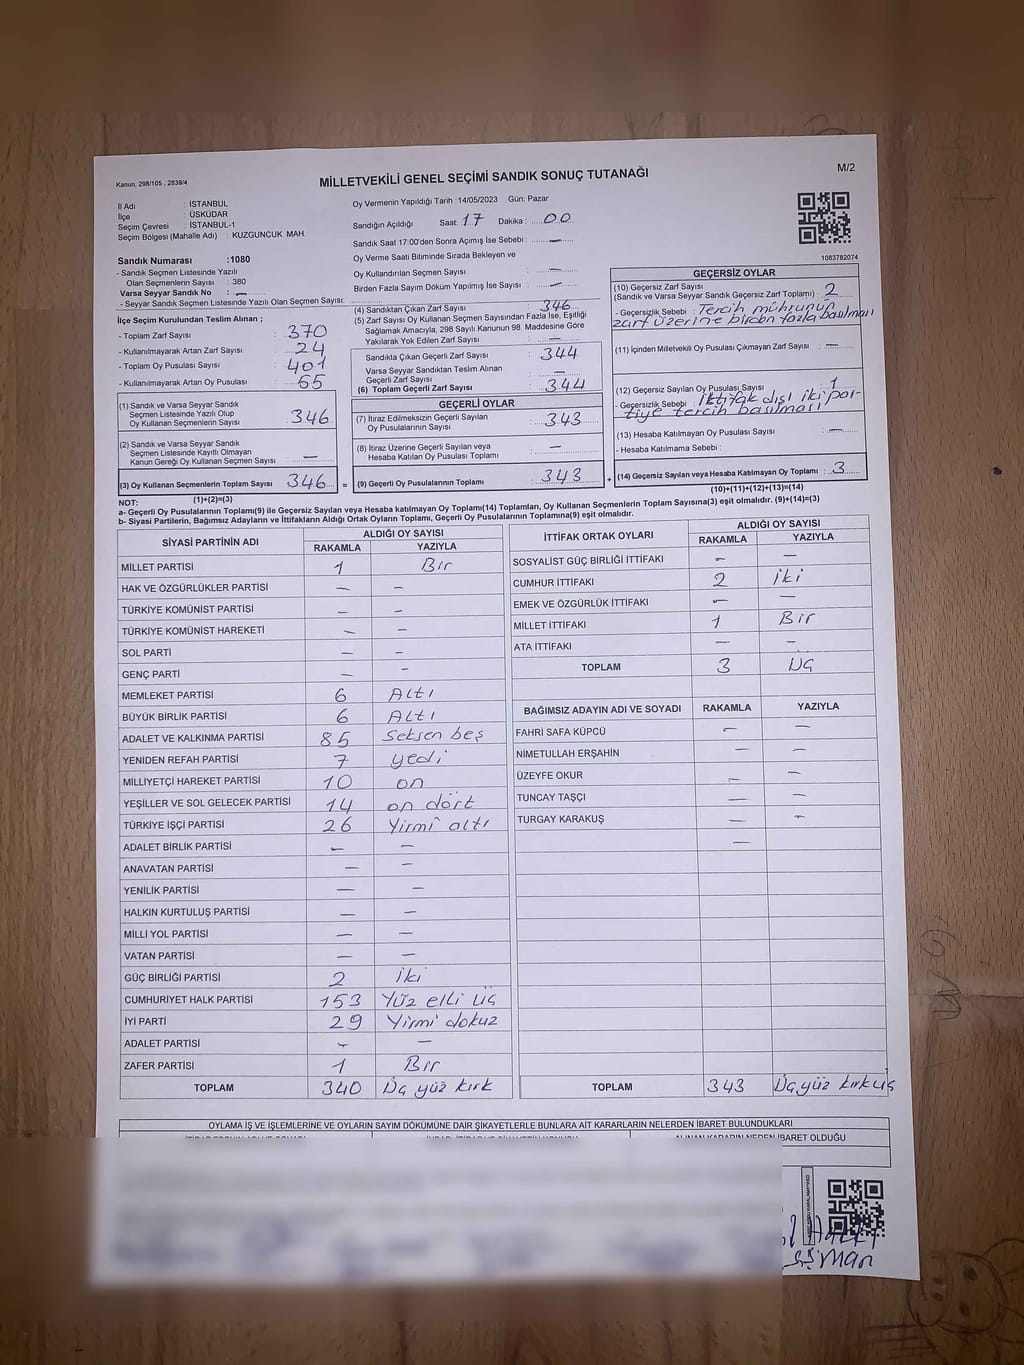 M/2
Kanun; 298/105 , 2839/4
MİLLETVEKİLİ GENEL SEÇİMİ SANDIK SONUÇ TUTANAĞI
İl Adı : İSTANBUL
İlçe : ÜSKÜDAR
Seçim Çevresi : İSTANBUL-1
Seçim Bölgesi (Mahalle Adı) : KUZGUNCUK MAH.
Sandık Numarası :1080
- Sandık Seçmen Listesinde Yazılı
Olan Seçmenlerin Sayısı : 380
Varsa Seyyar Sandık No : —
- Seyyar Sandık Seçmen Listesinde Yazılı Olan Seçmen Sayısı:
Oy Vermenin Yapıldığı Tarih :14/05/2023 Gün: Pazar
Sandığın Açıldığı Saat: 17 Dakika : 00
Sandık Saat 17:00'den Sonra Açımış İse Sebebi: —
Oy Verme Saati Bitiminde Sırada Bekleyen ve
Oy Kullandırılan Seçmen Sayısı : —
Birden Fazla Sayım Döküm Yapılmış İse Sayısı : —
1083782074
İlçe Seçim Kurulundan Teslim Alınan ;
- Toplam Zarf Sayısı : 370
- Kullanılmayarak Artan Zarf Sayısı : 24
- Toplam Oy Pusulası Sayısı : 401
- Kullanılmayarak Artan Oy Pusulası : 65
(1) Sandık ve Varsa Seyyar Sandık
Seçmen Listesinde Yazılı Olup
Oy Kullanan Seçmenlerin Sayısı : 346
(2) Sandık ve Varsa Seyyar Sandık
Seçmen Listesinde Kayıtlı Olmayan
Kanun Gereği Oy Kullanan Seçmen Sayısı : —
(3) Oy Kullanan Seçmenlerin Toplam Sayısı : 346 =
(1)+(2)=(3)
(4) Sandıktan Çıkan Zarf Sayısı : 346
(5) Zarf Sayısı Oy Kullanan Seçmen Sayısından Fazla İse, Eşitliği
Sağlamak Amacıyla, 298 Sayılı Kanunun 98. Maddesine Göre
Yakılarak Yok Edilen Zarf Sayısı : —
Sandıkta Çıkan Geçerli Zarf Sayısı : 344
Varsa Seyyar Sandıktan Teslim Alınan
Geçerli Zarf Sayısı : —
(6) Toplam Geçerli Zarf Sayısı : 344
GEÇERLİ OYLAR
(7) İtiraz Edilmeksizin Geçerli Sayılan
Oy Pusulalarının Sayısı : 343
(8) İtiraz Üzerine Geçerli Sayılan veya
Hesaba Katılan Oy Pusulası Toplamı : —
(9) Geçerli Oy Pusulalarının Toplamı : 343 +
GEÇERSİZ OYLAR
(10) Geçersiz Zarf Sayısı
(Sandık ve Varsa Seyyar Sandık Geçersiz Zarf Toplamı) : 2
- Geçersizlik Sebebi : Tercih mührünün
zarf üzerine birden fazla basılması
(11) İçinden Milletvekili Oy Pusulası Çıkmayan Zarf Sayısı : —
(12) Geçersiz Sayılan Oy Pusulası Sayısı : 1
- Geçersizlik Sebebi : İttifak dışı iki par-
tiye tercih basılması
(13) Hesaba Katılmayan Oy Pusulası Sayısı : —
- Hesaba Katılmama Sebebi :
(14) Geçersiz Sayılan veya Hesaba Katılmayan Oy Toplamı : 3
(10)+(11)+(12)+(13)=(14)
NOT:
a- Geçerli Oy Pusulalarının Toplamı(9) ile Geçersiz Sayılan veya Hesaba katılmayan Oy Toplamı(14) Toplamları, Oy Kullanan Seçmenlerin Toplam Sayısına(3) eşit olmalıdır. (9)+(14)=(3)
b- Siyasi Partilerin, Bağımsız Adayların ve İttifakların Aldığı Ortak Oyların Toplamı, Geçerli Oy Pusulalarının Toplamına(9) eşit olmalıdır.
SİYASİ PARTİNİN ADI ALDIĞI OY SAYISI
RAKAMLA YAZIYLA
MİLLET PARTİSİ 1 Bir
HAK VE ÖZGÜRLÜKLER PARTİSİ — —
TÜRKİYE KOMÜNİST PARTİSİ — —
TÜRKİYE KOMÜNİST HAREKETİ — —
SOL PARTİ — —
GENÇ PARTİ — —
MEMLEKET PARTİSİ 6 Altı
BÜYÜK BİRLİK PARTİSİ 6 Altı
ADALET VE KALKINMA PARTİSİ 85 Seksen beş
YENİDEN REFAH PARTİSİ 7 yedi
MİLLİYETÇİ HAREKET PARTİSİ 10 on
YEŞİLLER VE SOL GELECEK PARTİSİ 14 on dört
TÜRKİYE İŞÇİ PARTİSİ 26 Yirmi altı
ADALET BİRLİK PARTİSİ — —
ANAVATAN PARTİSİ — —
YENİLİK PARTİSİ — —
HALKIN KURTULUŞ PARTİSİ — —
MİLLİ YOL PARTİSİ — —
VATAN PARTİSİ — —
GÜÇ BİRLİĞİ PARTİSİ 2 İki
CUMHURİYET HALK PARTİSİ 153 Yüz elli üç
İYİ PARTİ 29 Yirmi dokuz
ADALET PARTİSİ — —
ZAFER PARTİSİ 1 Bir
TOPLAM 340 Üç yüz kırk
İTTİFAK ORTAK OYLARI ALDIĞI OY SAYISI
RAKAMLA YAZIYLA
SOSYALİST GÜÇ BİRLİĞİ İTTİFAKI — —
CUMHUR İTTİFAKI 2 iki
EMEK VE ÖZGÜRLÜK İTTİFAKI — —
MİLLET İTTİFAKI 1 Bir
ATA İTTİFAKI — —
TOPLAM 3 Üç
BAĞIMSIZ ADAYIN ADI VE SOYADI RAKAMLA YAZIYLA
FAHRİ SAFA KÜPCÜ — —
NİMETULLAH ERŞAHİN — —
ÜZEYFE OKUR — —
TUNCAY TAŞÇI — —
TURGAY KARAKUŞ — —
—
TOPLAM 343 Üç yüz kırküç
OYLAMA İŞ VE İŞLEMLERİNE VE OYLARIN SAYIM DÖKÜMÜNE DAİR ŞİKAYETLERLE BUNLARA AİT KARARLARIN NELERDEN İBARET BULUNDUKLARI
ALINAN KARARIN NEDEN İBARET OLDUĞU